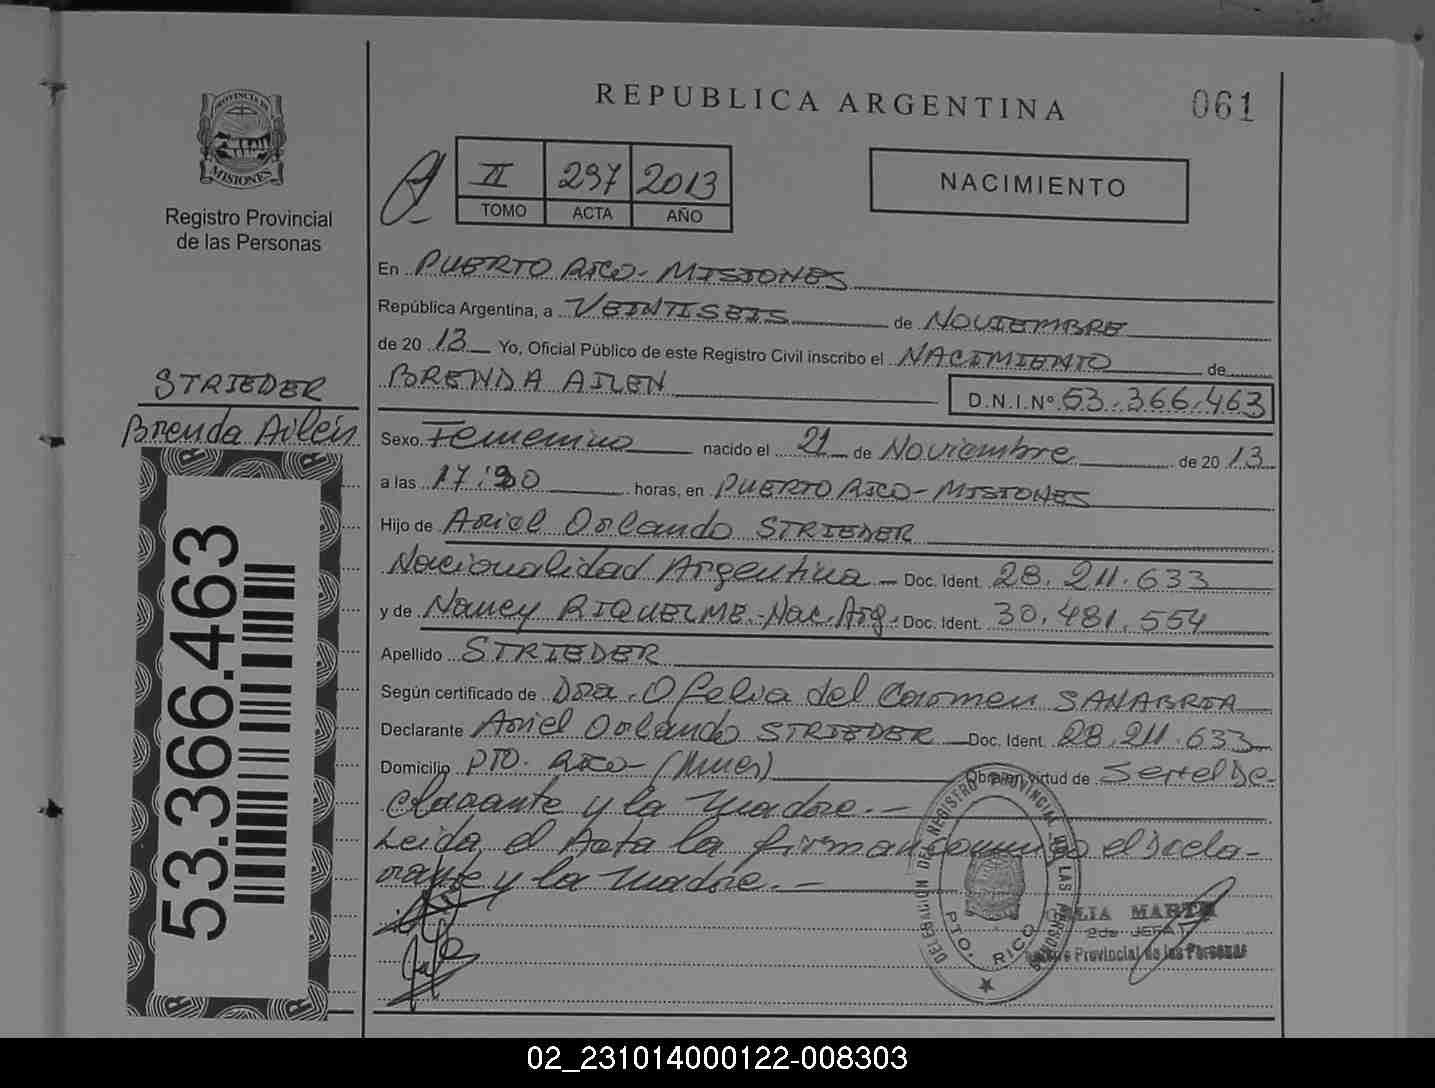 REPUBLICA ARGENTINA
061
PROVINCIA DE
MISIONES
Registro Provincial
de las Personas
II 297 2013
TOMO ACTA AÑO
NACIMIENTO
En PUERTO RICO - MISIONES
República Argentina, a VEINTISEIS de NOVIEMBRE
de 20 13 Yo, Oficial Público de este Registro Civil inscribo el NACIMIENTO de
BRENDA AILEN D.N.I.Nº 53.366.463
STRIEDER
Brenda Ailén
Sexo Femenino nacido el 21 de Noviembre de 20 13
a las horas, en PUERTO RICO - MISIONES
Hijo de Ariel Orlando STRIEDER
Nacionalidad Argentina - Doc. Ident. 28.211.633
y de Nancy RIQUELME.- Nac. Arg. Doc. Ident. 30.481.554
Apellido STRIEDER
Según certificado de Dra. Ofelia del Carmen SANABRIA
Declarante Ariel Orlando STRIEDER Doc. Ident. 28.211.633
Domicilio PTO. RICO - (Mnes) Obran en virtud de Ser el De-
clarante y la madre.-
Leída el Acta la firman conmigo el Decla-
rante y la madre.-
53.366.463
DELEGACION DEL REGISTRO PROVINCIAL DE LAS PERSONAS
PTO. RICO
MARTA
2da JEFA
Provincial de las Personas
02_231014000122-008303